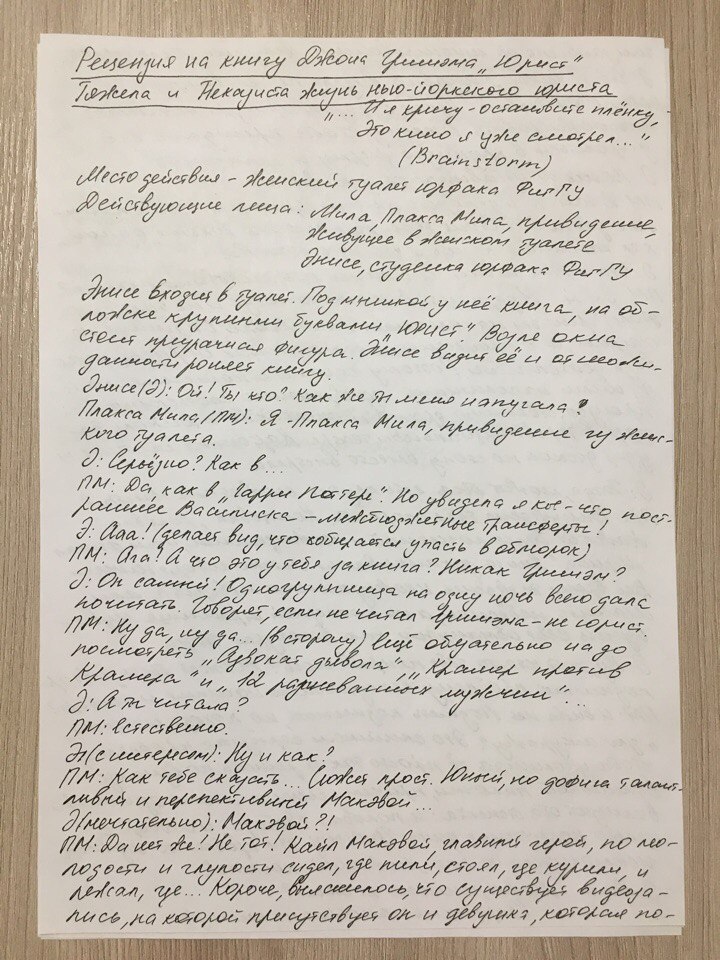 Рецензия на книгу Джона Гришэма „Юрист"
Тяжела и Неказиста жизнь нью-йоркского юриста
„... И я кричу - остановите плёнку,
Это кино я уже смотрел..."
(Brainstorm)
Место действия - женский туалет юрфака ФигГУ
Действующие лица: Мила, Плакса Мила, привидение,
живущее в женском туалете
Энисе, студентка юрфака ФигГУ
Энисе входит в туалет. Под мышкой у неё книга, на об-
ложке крупными буквами „Юрист". Возле окна
стоит призрачная фигура. Энисе видит её и от неожи-
данности роняет книгу.
Энисе(Э): Ой! Ты что? Как же ты меня напугала?
Плакса Мила(ПМ): Я - Плакса Мила, привидение из женс-
кого туалета.
Э: Серьёзно? Как в...
ПМ: Да, как в „Гарри Поттере". Но увидела я кое-что пост-
рашнее Василиска - межбюджетные трансферты!
Э: Ааа! (делает вид, что собирается упасть в обморок)
ПМ: Ага! А что это у тебя за книга? Никак Гришэм?
Э: Он самый! Одногруппница на одну ночь всего дала
почитать. Говорят, если не читал Гришэма - не юрист.
ПМ: Ну да, ну да... (в сторону) Ещё обязательно надо
посмотреть „Адвокат дьявола", „Крамер против
Крамера" и „12 разгневанных мужчин"...
Э: А ты читала?
ПМ: Естественно.
Э(с интересом): Ну и как?
ПМ: Как тебе сказать... Сюжет прост. Юный, но дофига талант-
ливый и перспективный Макэвой...
Э(мечтательно): Макэвой?!
ПМ: Да нет же! Не тот! Кайл Макэвой, главный герой, по мо-
лодости и глупости сидел, где пили, стоял, где курили, и
лежал, где... Короче, выяснилось, что существует видеоза-
пись, на которой присутствует он и девушка, которая по-